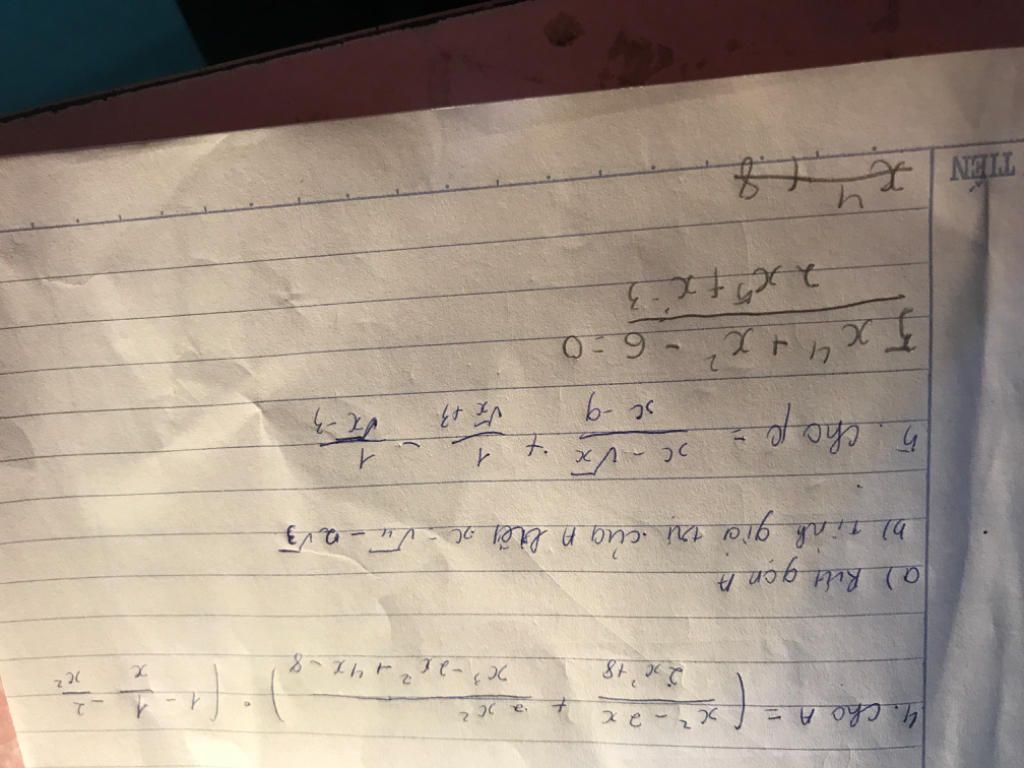 4. Cho A = ( (x² - 2x)/(2x² + 8) + 2x²/(x³ - 2x² + 4x - 8) ) . ( 1 - 1/x - 2/x²
a) Rút gọn A
b) Tính giá trị của A biết x = √4 - 2√3
5. Cho P = (x - √x)/(x - 9) + 1/(√x + 3) - 1/(√x - 3)
5x⁴ + x² - 6 = 0
2x⁵ + x - 3
x⁴ + 8
TIẾN